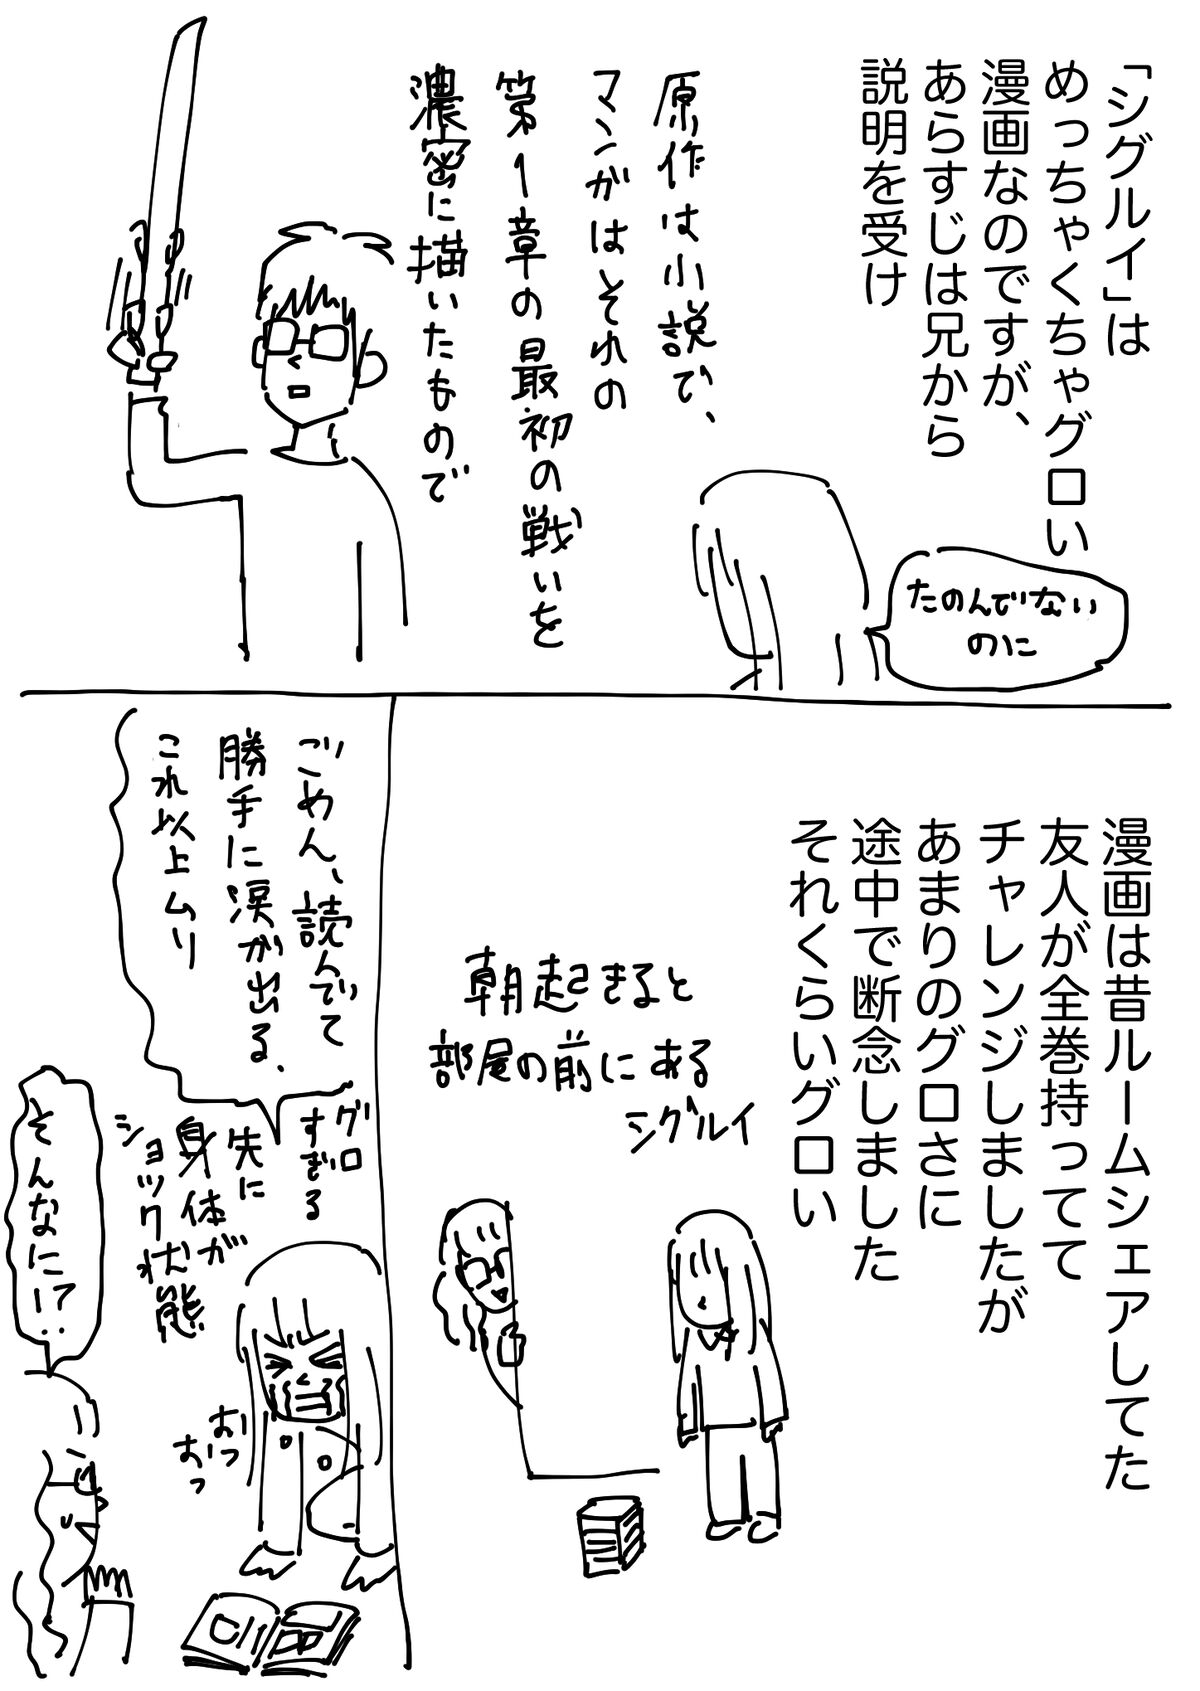 「シグルイ」は
めっちゃくちゃグロい
漫画なのですが、
あらすじは兄から
説明を受け
たのんでない
のに
原作は小説で、
マンガはそれの
第1章の最初の戦いを
濃密に描いたもので
漫画は昔ルームシェアしてた
友人が全巻持ってて
チャレンジしましたが
あまりのグロさに
途中で断念しました
それくらいグロい
朝起きると
部屋の前にある
シグルイ
ごめん、読んでて
勝手に涙が出る、
これ以上ムリ
グロ
すぎる
先に
身体が
ショック状態
おっ
おっ
そんなに!?